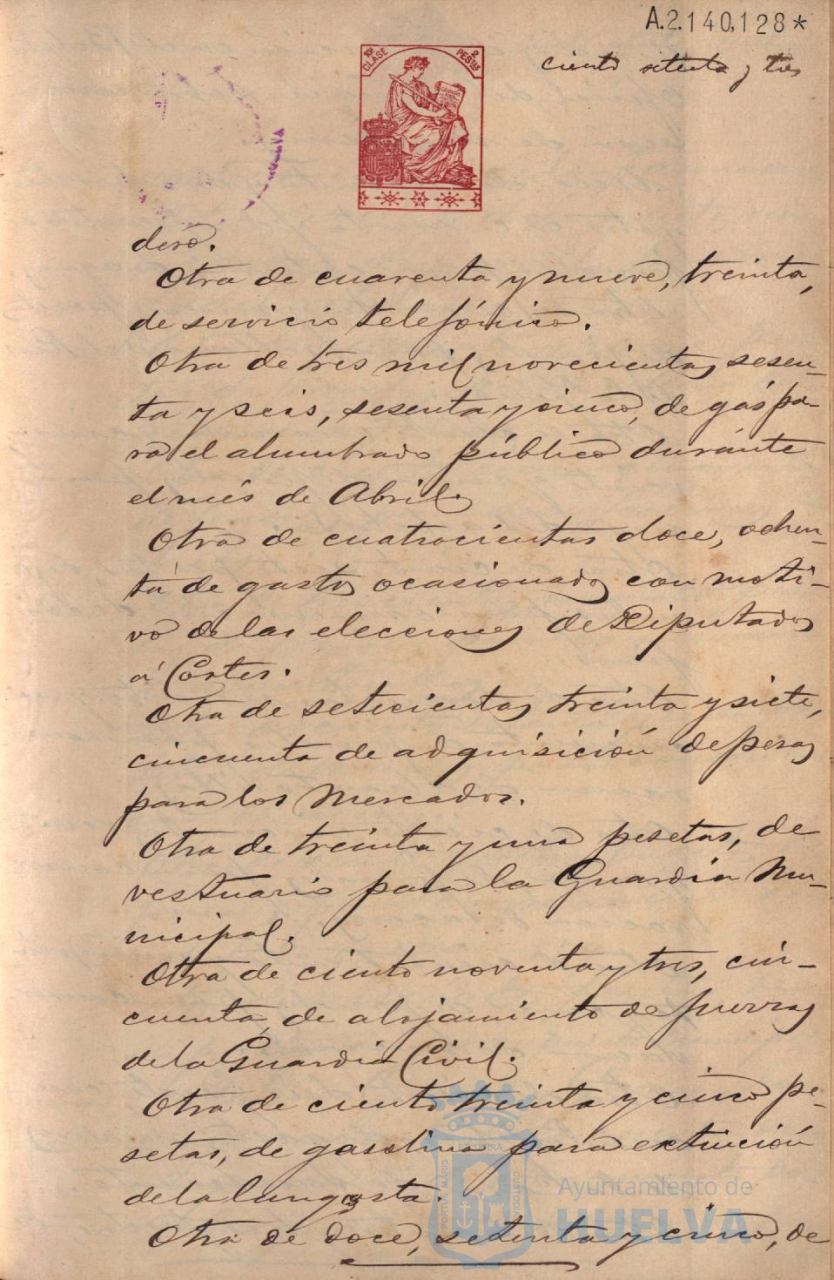 A.2.140,128*
ciento setenta y tres
10ª CLASE
2 PESTAS
HUELVA
dero.
Otra de cuarenta y nueve, treinta,
de servicio telefónico.
Otra de tres mil novecientas sesen-
ta y seis, sesenta y cinco, de gás pa-
ra el alumbrado público durante
el més de Abril.
Otra de cuatrocientas doce, ochen-
ta de gastos ocasionados con moti-
vo de las elecciones de Diputados
á Cortes.
Otra de setecientas treinta y siete,
cincuenta de adquisición de pesas
para los Mercados.
Otra de treinta y una pesetas, de
vestuario para la Guardia Mu-
nicipal.
Otra de ciento noventa y tres, cin-
cuenta, de alojamiento de fuerzas
de la Guardia Civil.
Otra de ciento treinta y cinco pe-
setas, de gasolina para extinción
de la langosta.
Otra de doce, setenta y cinco, de
Ayuntamiento de
HUELVA